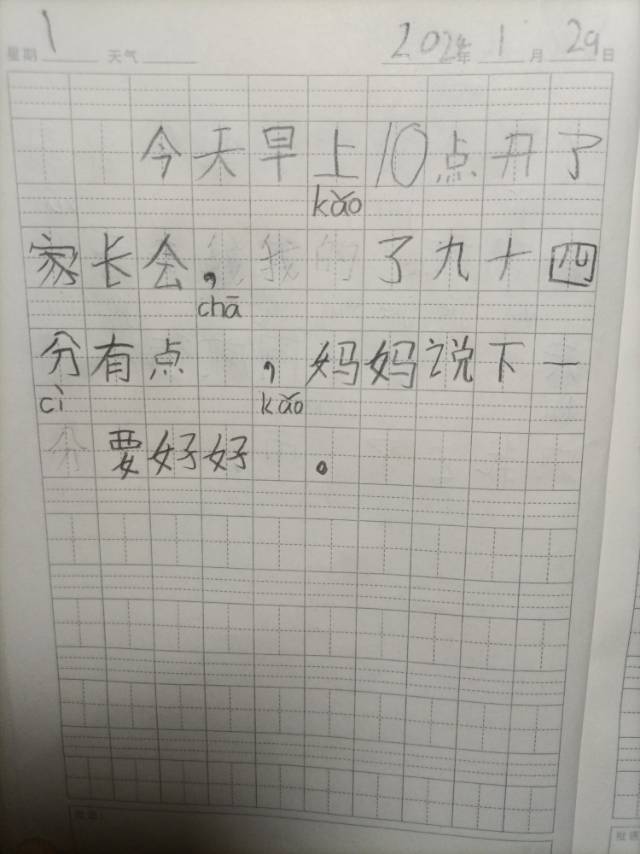 星期 1 天气 2024年 1月 29日
今天早上10点开了
kǎo
家长会，我的了九十四
chā
分有点，妈妈说下一
cì kǎo
要好好。
批语：